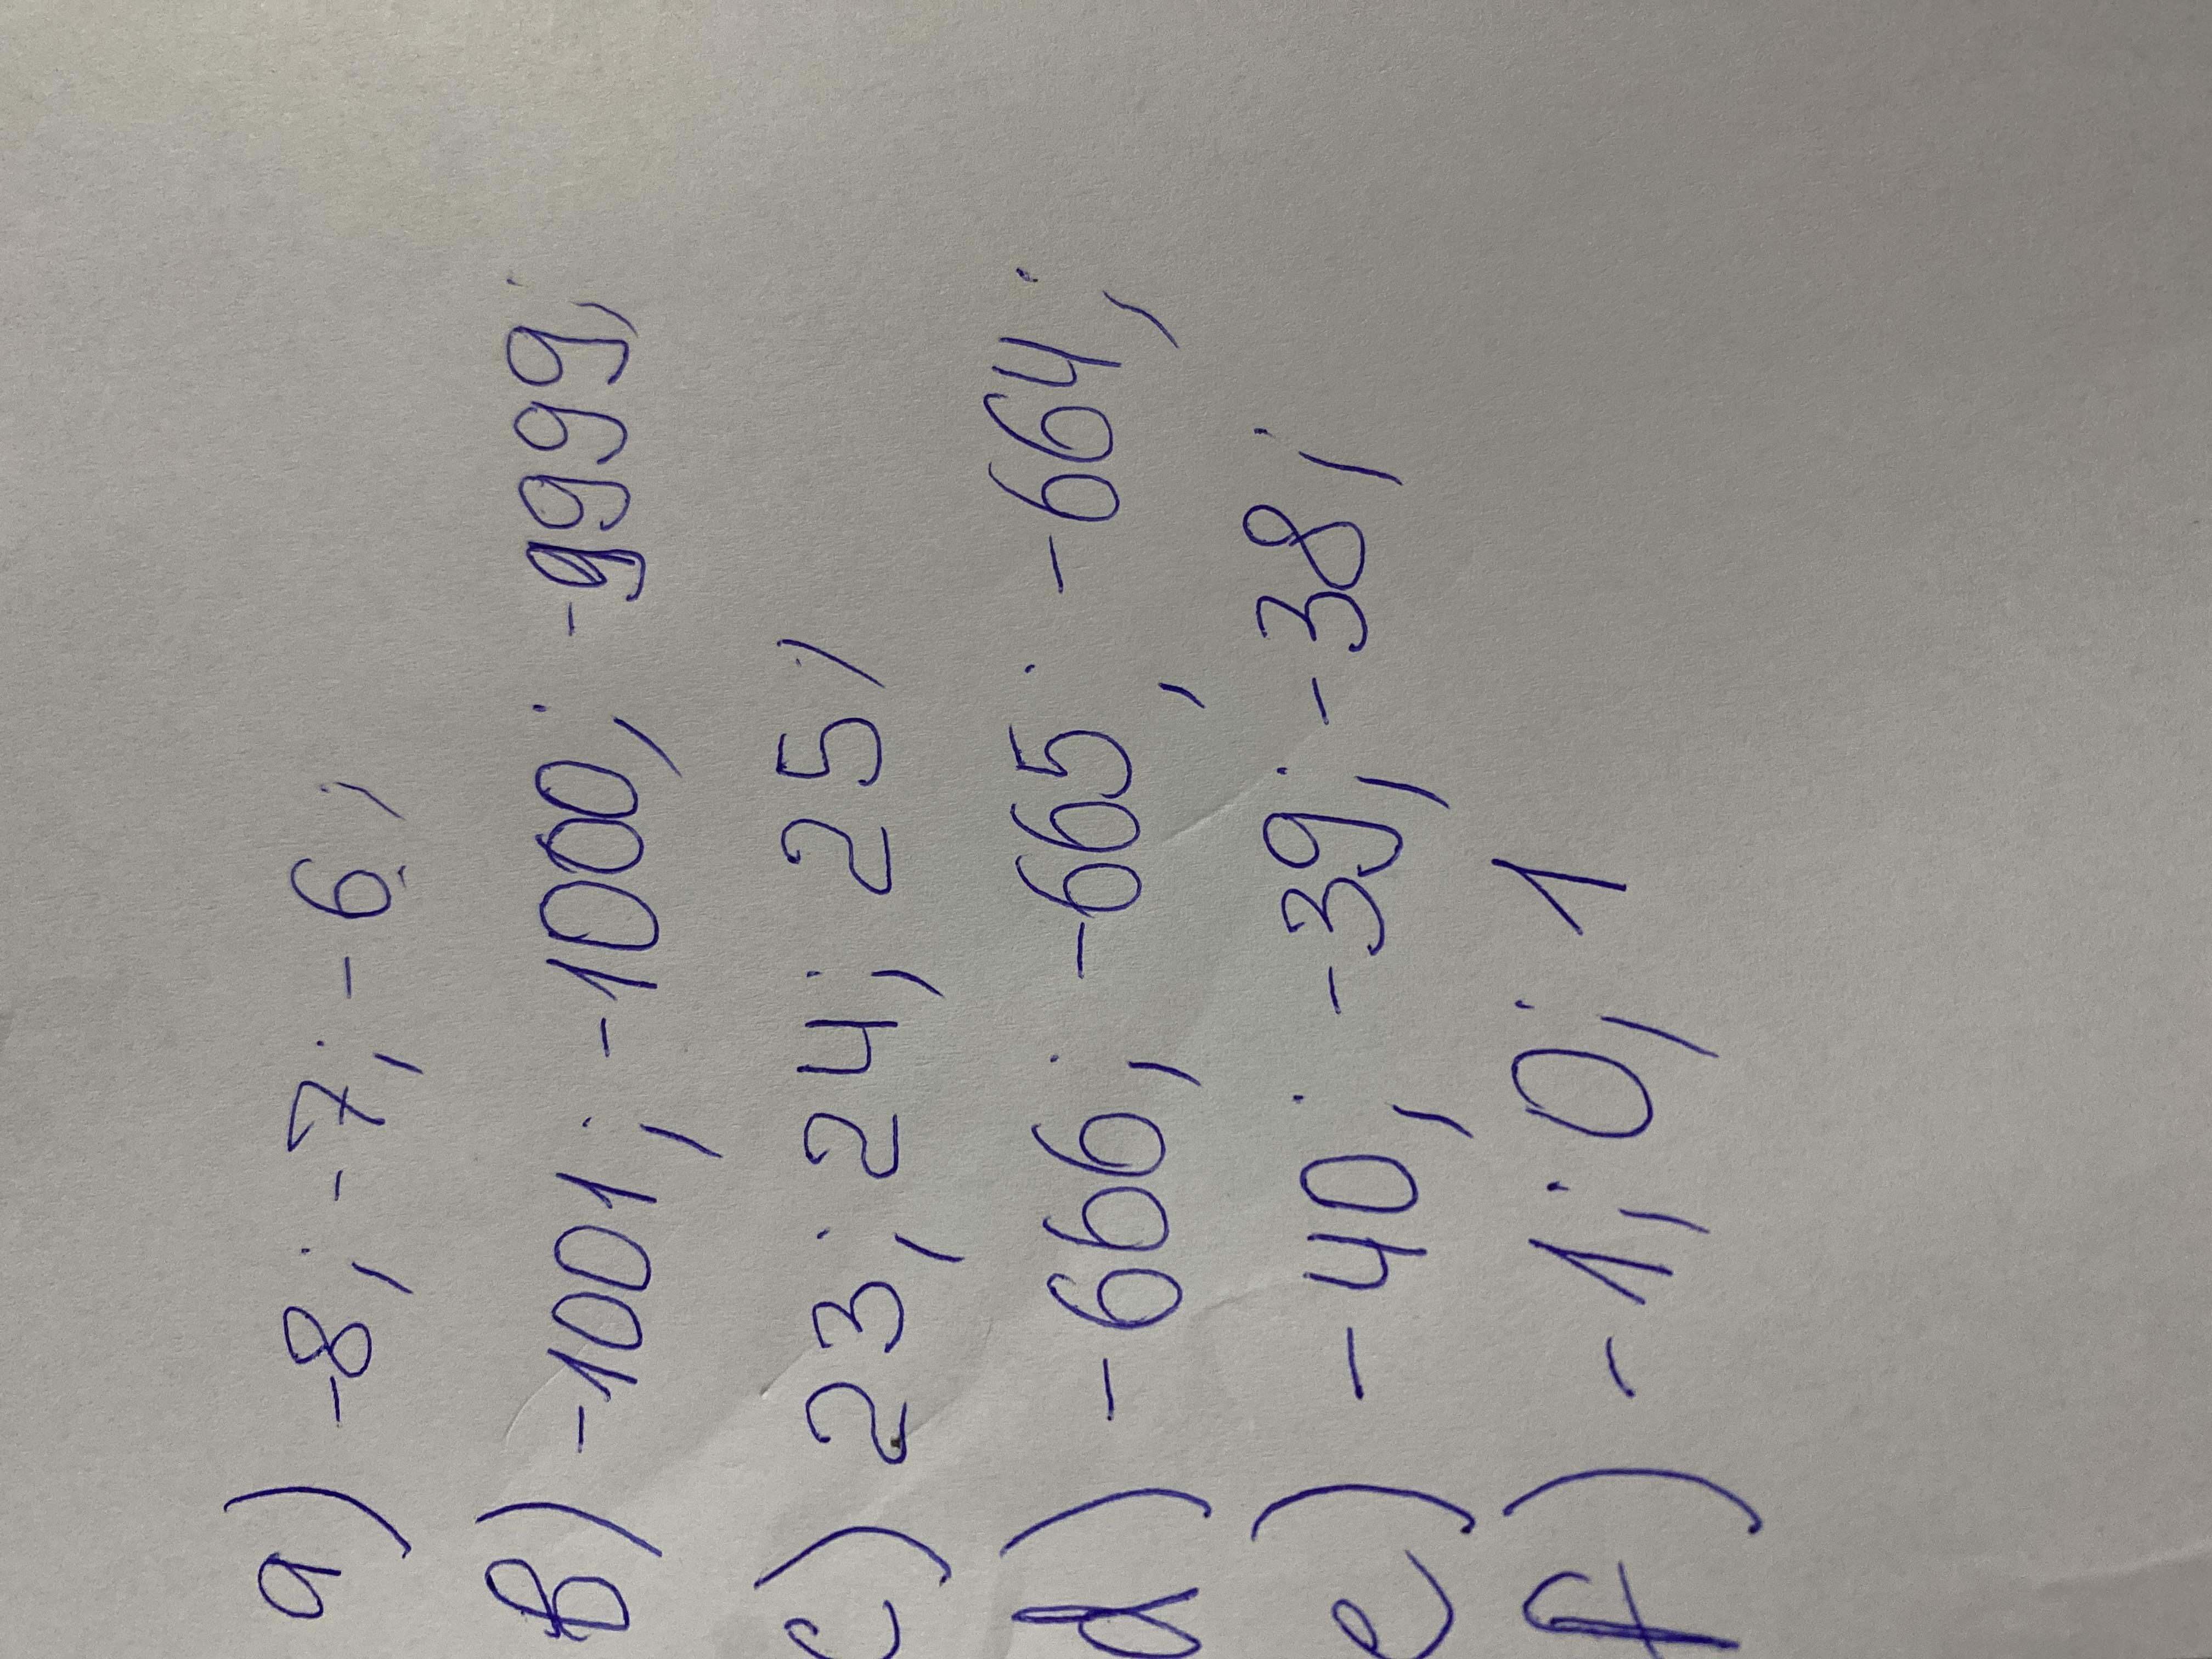 a) -8; -7; -6;
b) -1001; -1000; -9999;
c) 23; 24; 25;
d) -666; -665; -664;
e) -40; -39; -38;
f) -1; 0; 1